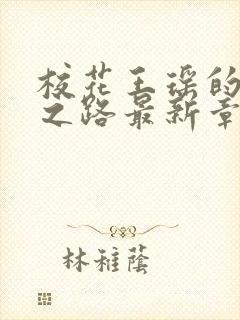 校花王瑶的
之路最新章
林稚蔭